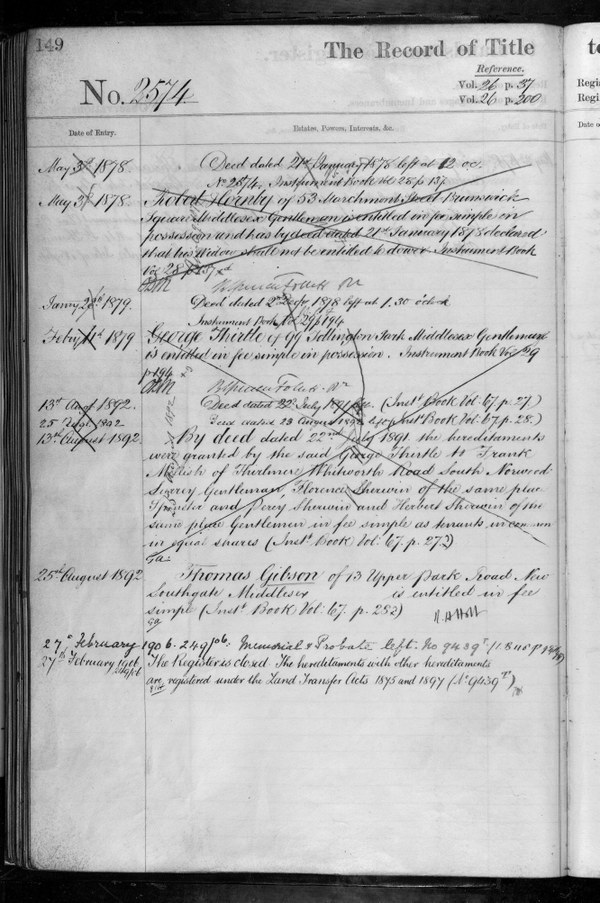 149
The Record of Title
Reference.
No. 2574
Vol. 26 p. 37
Vol. 26 p. 200
Date of Entry.
Estates, Powers, Interests, &c.
May 3rd 1878. Deed dated 21st January 1878 left at 12 oc.
No 2574. Instrument Book Vol 28 p 137
May 3rd 1878. Robert Hornby of 53 Marchmont Street Brunswick
Square Middlesex Gentleman is entitled in fee simple in
possession and has by deed dated 21st January 1878 declared
that his widow shall not be entitled to dower. Instrument Book
Vol 28 p 137
Janry 1879. Deed dated 1878 left at 1.30 oclock
Instrument Book Vol 29 p 194
Febry 11th 1879 George Thirtle of 99 Tollington Park Middlesex Gentleman
is entitled in fee simple in possession. Instrument Book Vol 29
p 194
13th Augt 1892. Deed dated 22nd July 1891 (Inst Book Vol. 67. p. 27)
25 1892 Deed dated 23 August 1892 (Inst Book Vol. 67. p. 28.)
13th August 1892. By deed dated 22nd July 1891 the hereditaments
were granted by the said George Thirtle to Frank
of Whitworth Road South Norwood
Surrey Gentleman, Florence Sherwin of the same place
Spinster and Percy Sherwin and Herbert Sherwin of the
same place Gentlemen in fee simple as tenants in common
in equal shares (Inst Book Vol: 67. p. 272)
25th August 1892 Thomas Gibson of 13 Upper Park Road New
Southgate Middlesex is entitled in fee
simple (Inst Book Vol: 67. p. 282)
27th February 1906. Memorial & Probate left. No 9439
27th February 1906 The Register is closed. The hereditaments with other hereditaments
are registered under the Land Transfer Acts 1875 and 1897 (No 9439)
to
Regi
Regi
Date o